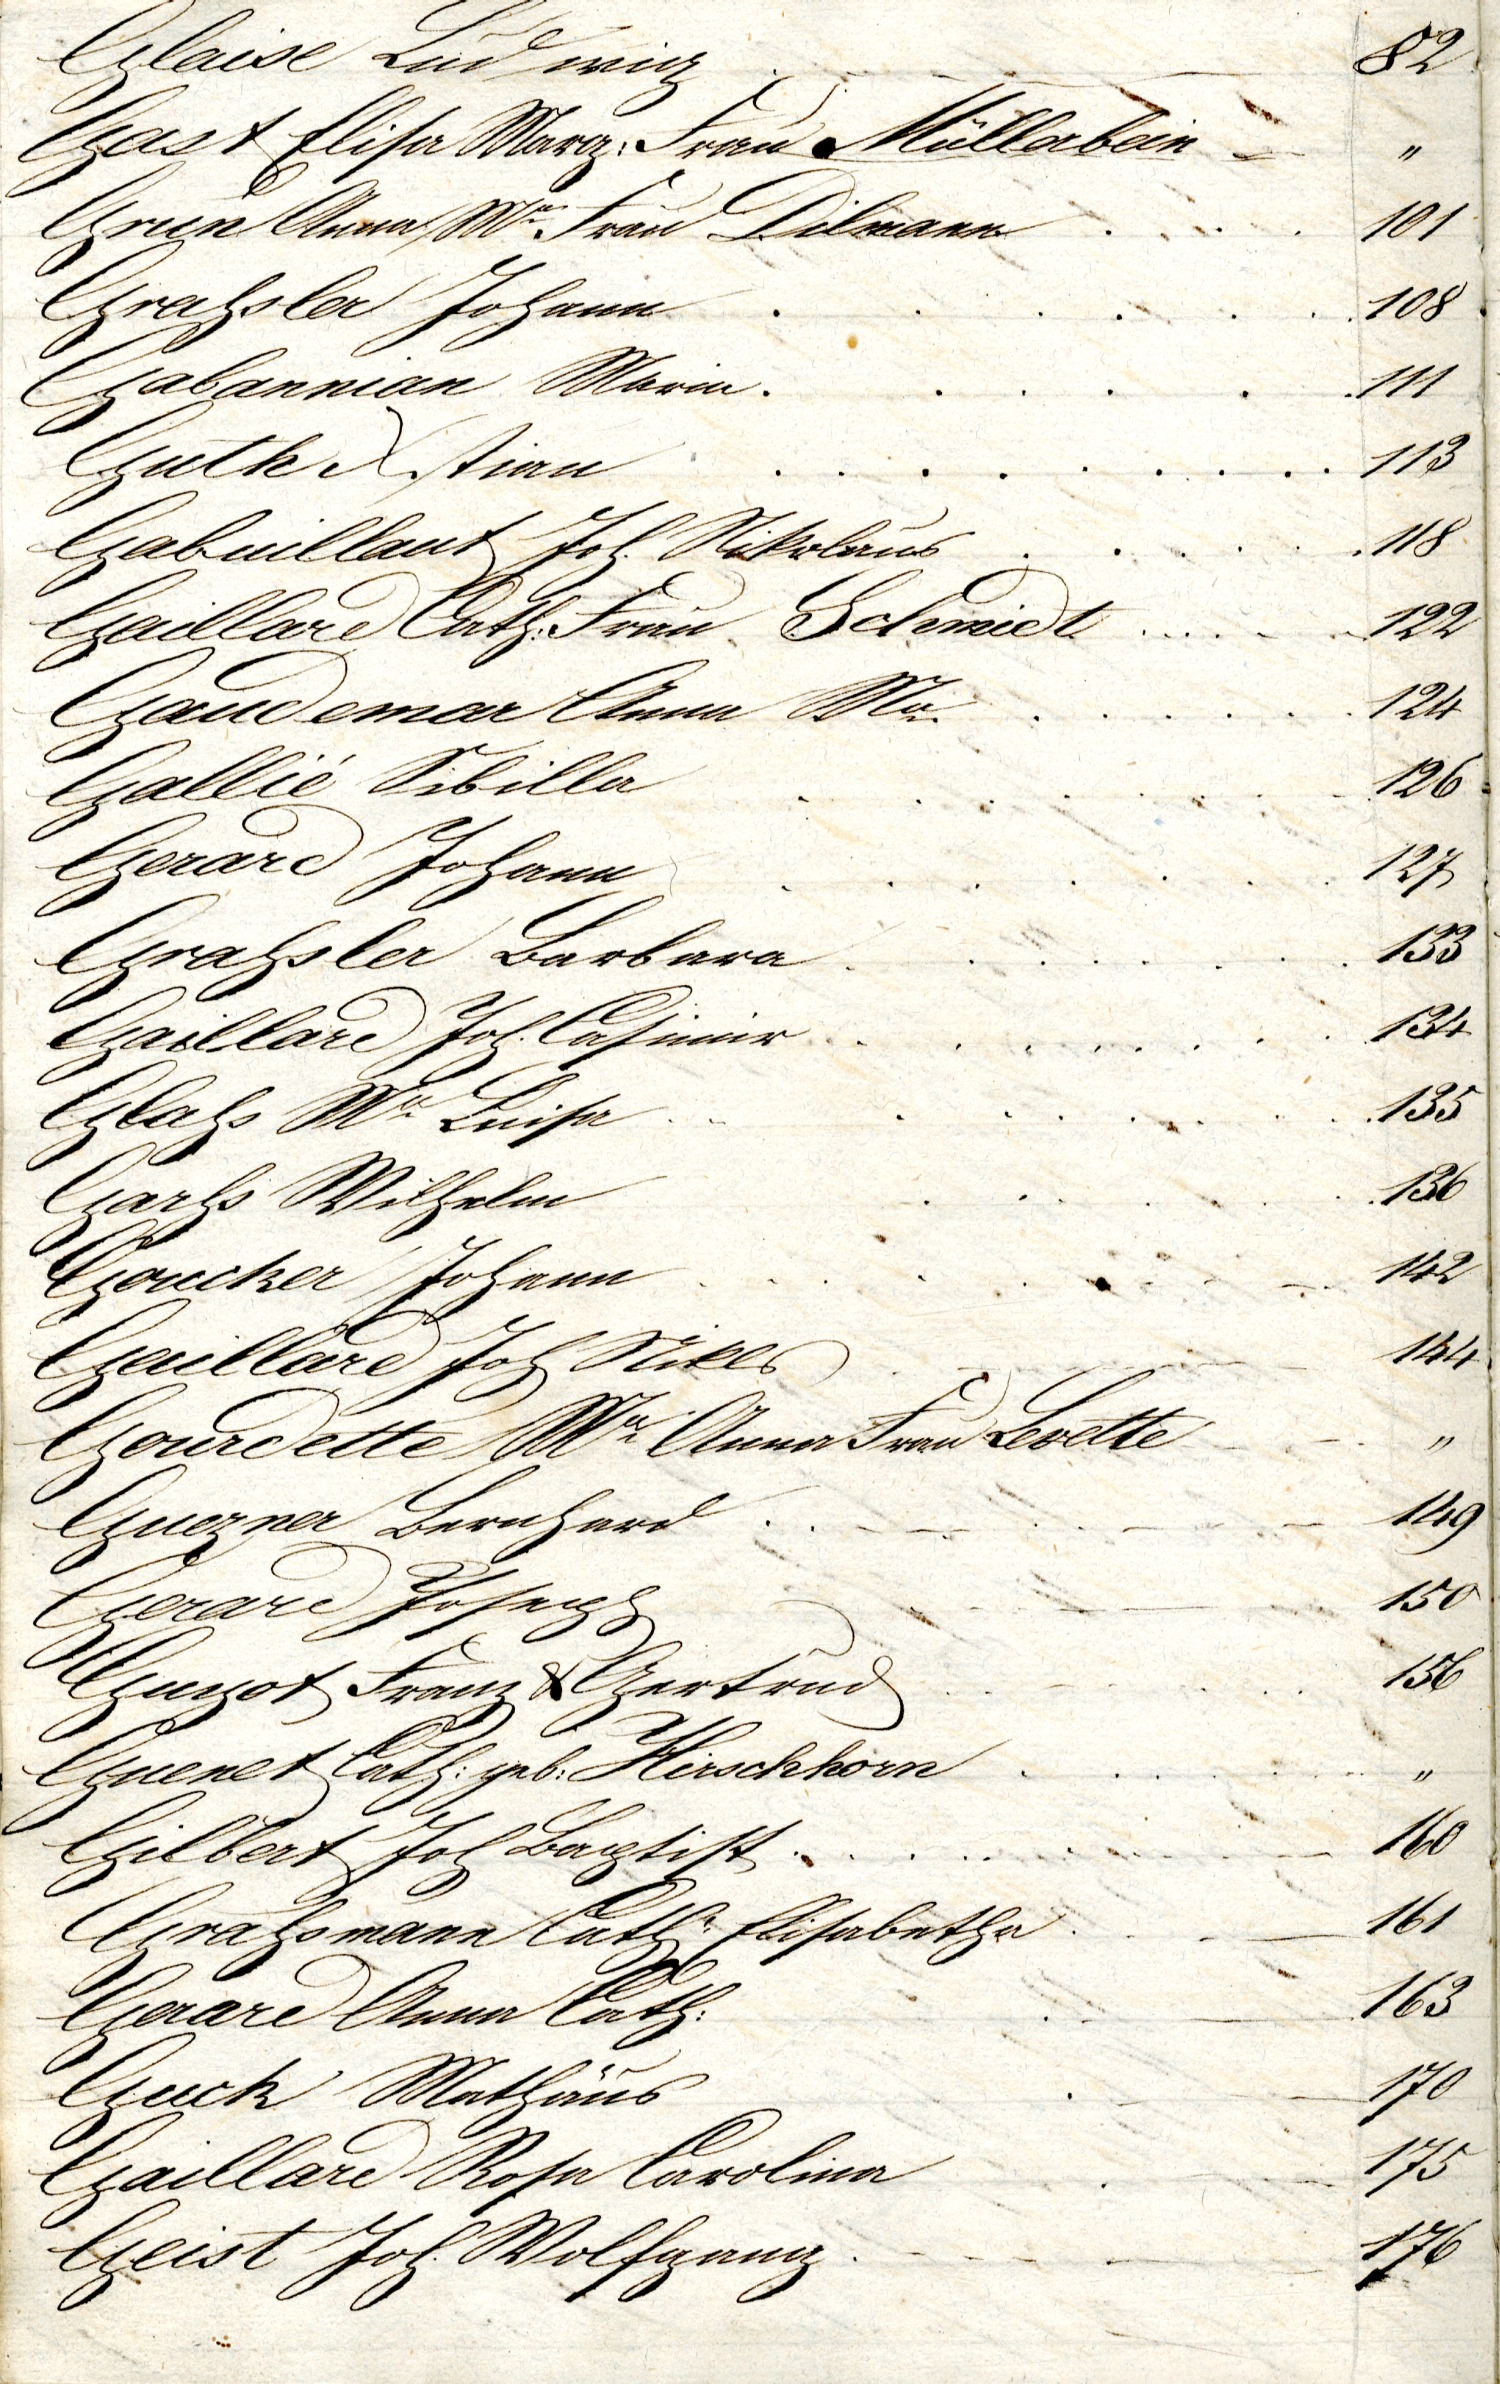 Glaise Ludwig . 82
Gast Elisa Marg: Frau Müllerbein „
Grün Anna Mª Frau Dilmann . . . . 101
Graßler Johann . . . . . . . 108
Gabannian Maria . . . . . 111
Guth Xstian . . . . . . . . . . 113
Gabuillaut Joh. Nikolaus . . . . . . 118
Gaillard Cath: Frau Schmidt . . . . 122
Gaudemar Anna Mª . . . . . . 124
Gallié Sibilla . . . . . . . 126
Gerard Johann . . . . . . . 127
Graßler Barbara . . . . . . . 133
Gaillard Joh. Casimir . . . . . . . . 134
Glaß Mª Luisa . . . . . . . 135
Garß Wilhelm . . . . . . 136
Goucker Johann . . . . . . 142
Gaillard Joh Nikls 144
Gourdette Mª Anna Frau Lerette „
Guezner Bernhard . . 149
Gerard Joseph 150
Guyot Franz & Gertrud . . . . . . 156
Guenet Cath: geb: Hirschhorn . . . . . „
Gilbert Joh Baptist . . . . . 160
Graßmann Cathª Elisabetha . 161
Gerard Anna Cath: . 163
Guck Mathäus . 170
Gaillard Rosa Carolina . 175
Geist Joh. Wolfgang . 176